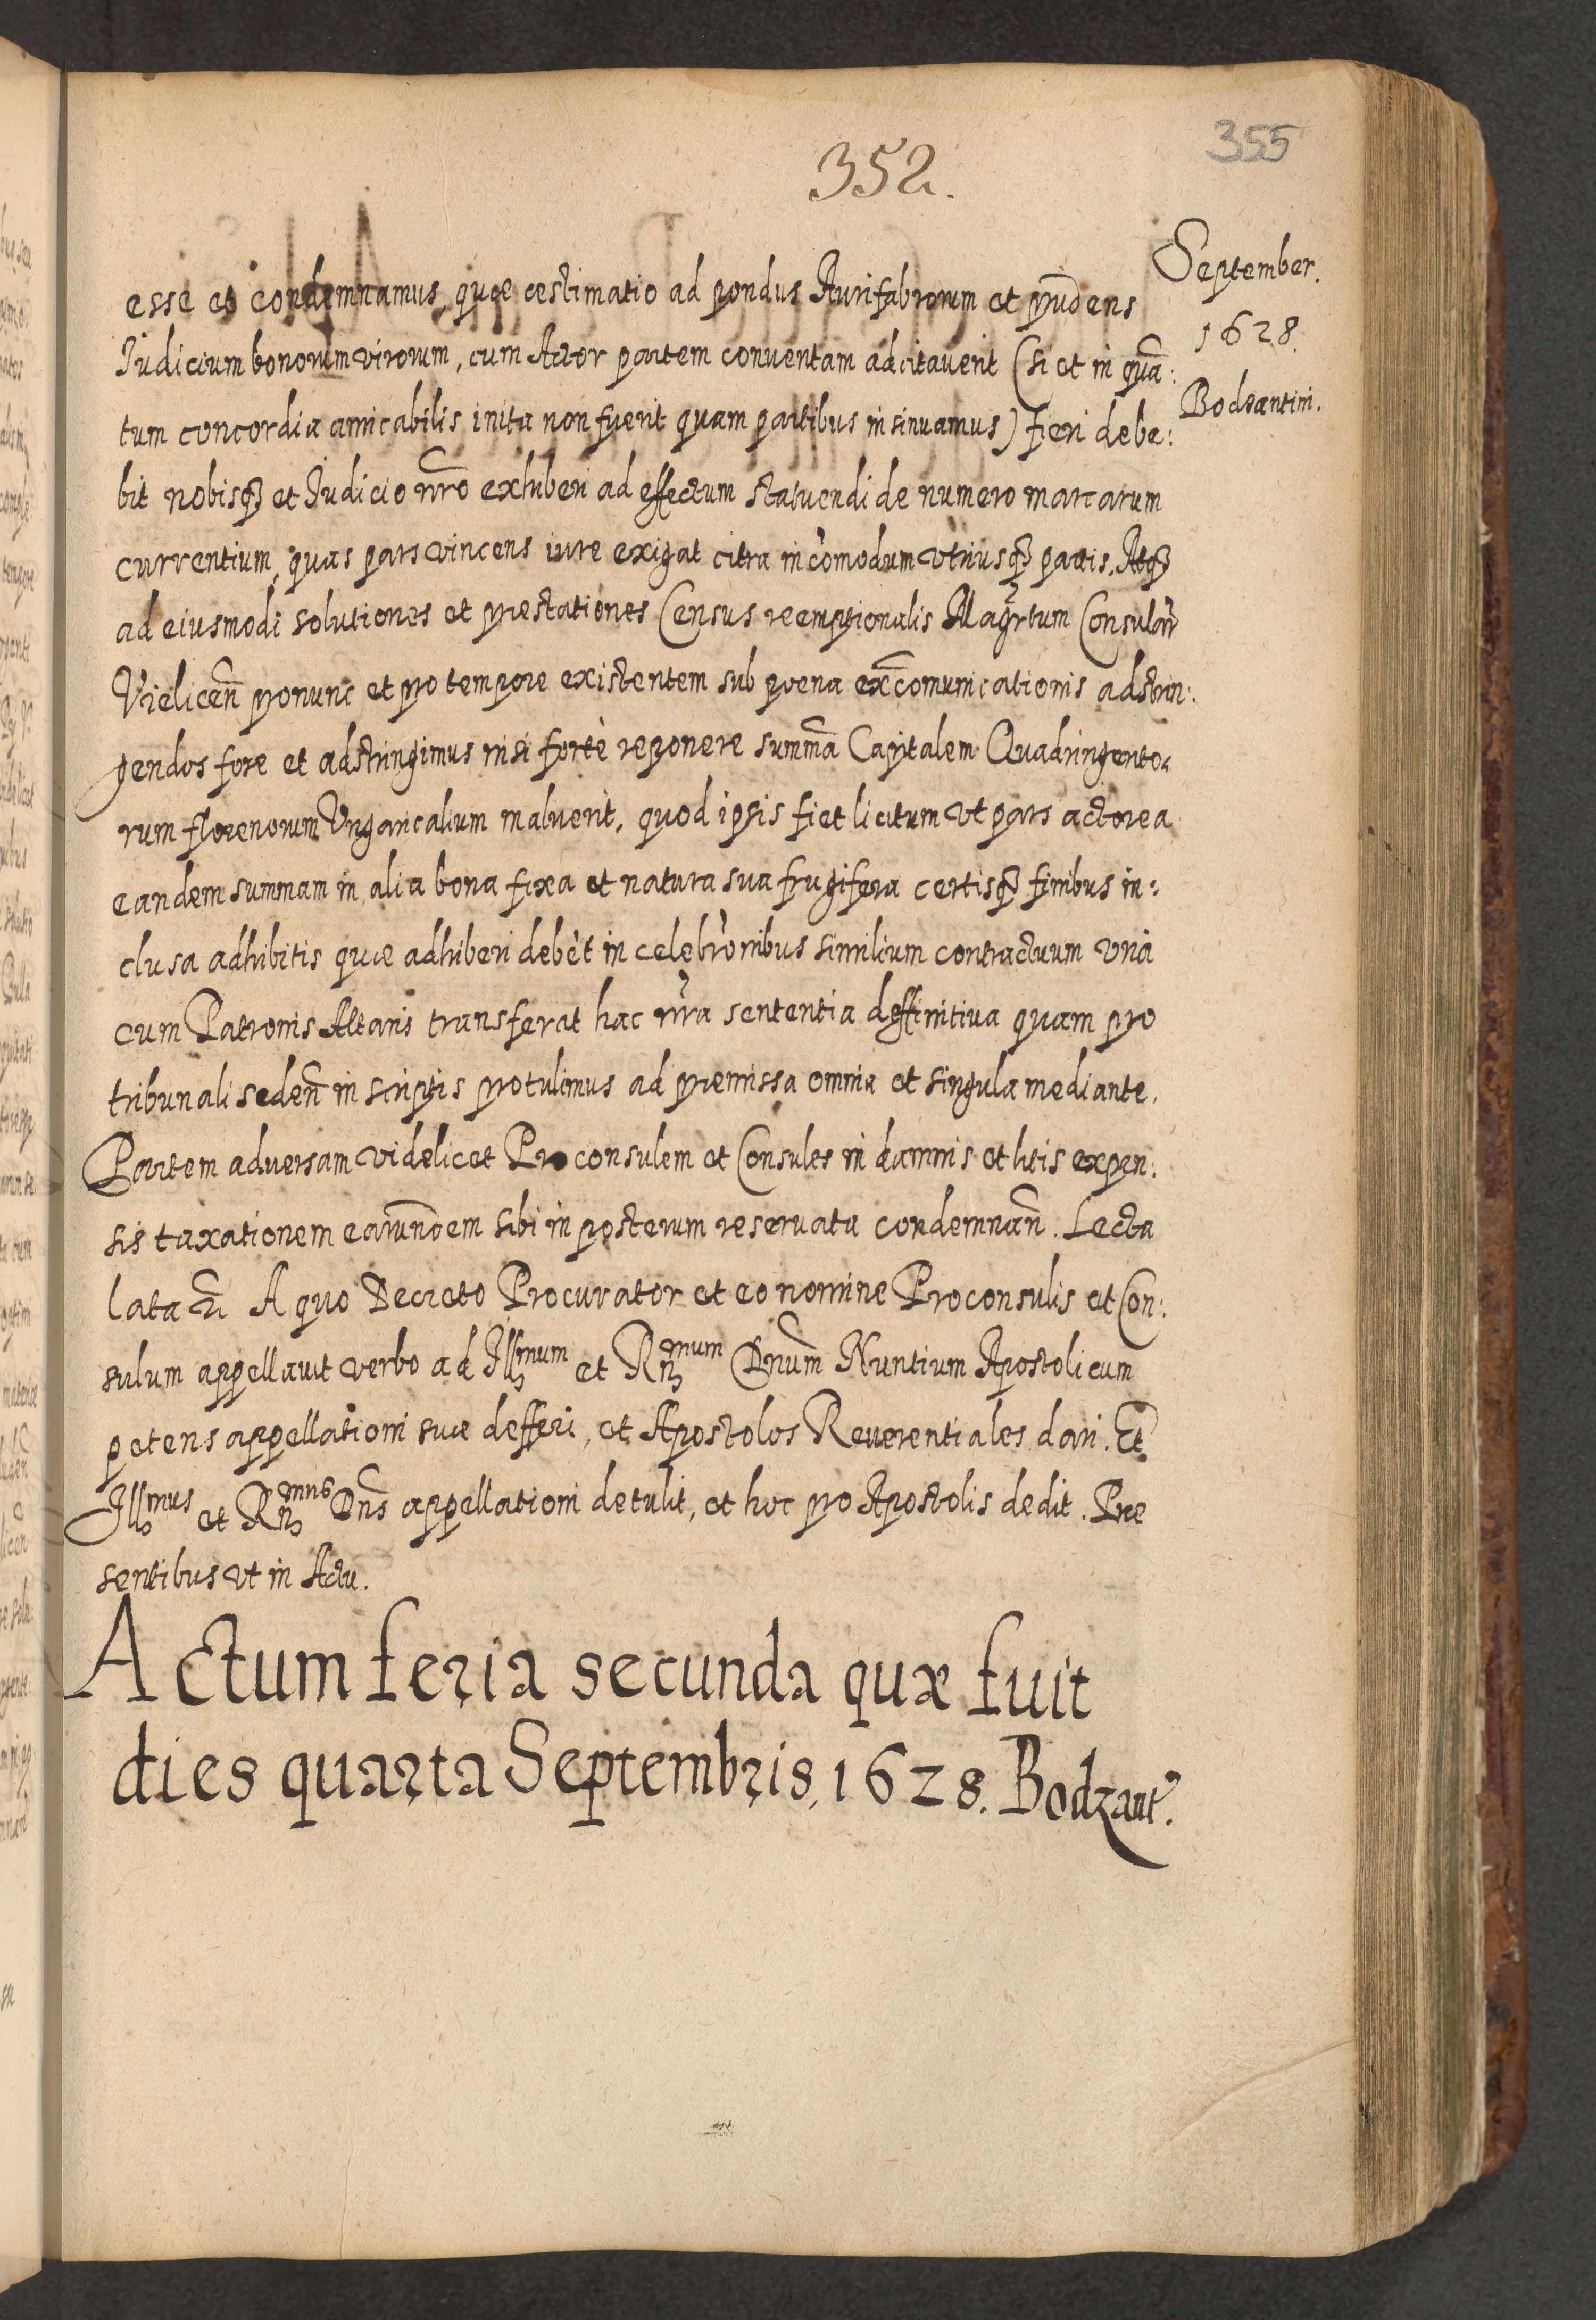 352.
355
September.
1628.
Bodzantini.
esse et condemnamus, quae aestimatio ad pondus Aurifabrorum et prudens
Judicium bonorum virorum, cum Actor partem conventam adcitaverit (si et in quā:
tum concordia amicabilis inita non fuerit quam partibus insinuamus) fieri debe:
bit nobisq₃ et Judicio nr̃o exhiberi ad effectum statuendi de numero marcarum
currentium, quas pars vincens iure exigat citra incòmodum vtriusq₃ partis. Atq₃
ad eiusmodi solutiones et prestationes Census reemptionalis Magr̃tum Consularẽ
Vielicen̄ pronunc et pro tempore existentem sub poena exc̄omunicationis adstrin:
gendos fore et adstringimus nisi fortè reponere summā Capitalem Quadringento:
rum florenorum Vngaricalium maluerit, quod ipsis fiet licitum vt pars actorea
eandem summam in alia bona fixa et natura sua frugifera certisq₃ finibus in:
clusa adhibitis quae adhiberi debèt in celebrònibus similium contractuum vnà
cum Patronis Altaris transferat hac nr̃a sententia deffinitiua quam pro
tribunali seden̄ in scriptis protulimus ad premissa omnia et singula mediante.
Partem adversam videlicet Proconsulem et Consules in damnis et litis expen:
sis taxationem earundem sibi in posterum reseruata condemnan̄. Lecta
lata A quo Decreto Procurator et eo nomine Proconsulis et Con:
sulum appellauit verbo ad Ill₃mum et Rn₃mum Dnūm Nuntium Apostolicum
petens appellationi suae defferi, et Apostolos Reuerentiales dari. Et
Ill₃mus et Rn₃mus Dn̄s appellationi detulit, et hoc pro Apostolis dedit. Pre
sentibus vt in Actu.
Actum feria secunda quæ fuit
dies quarta Septembris, 1628. Bodzant.